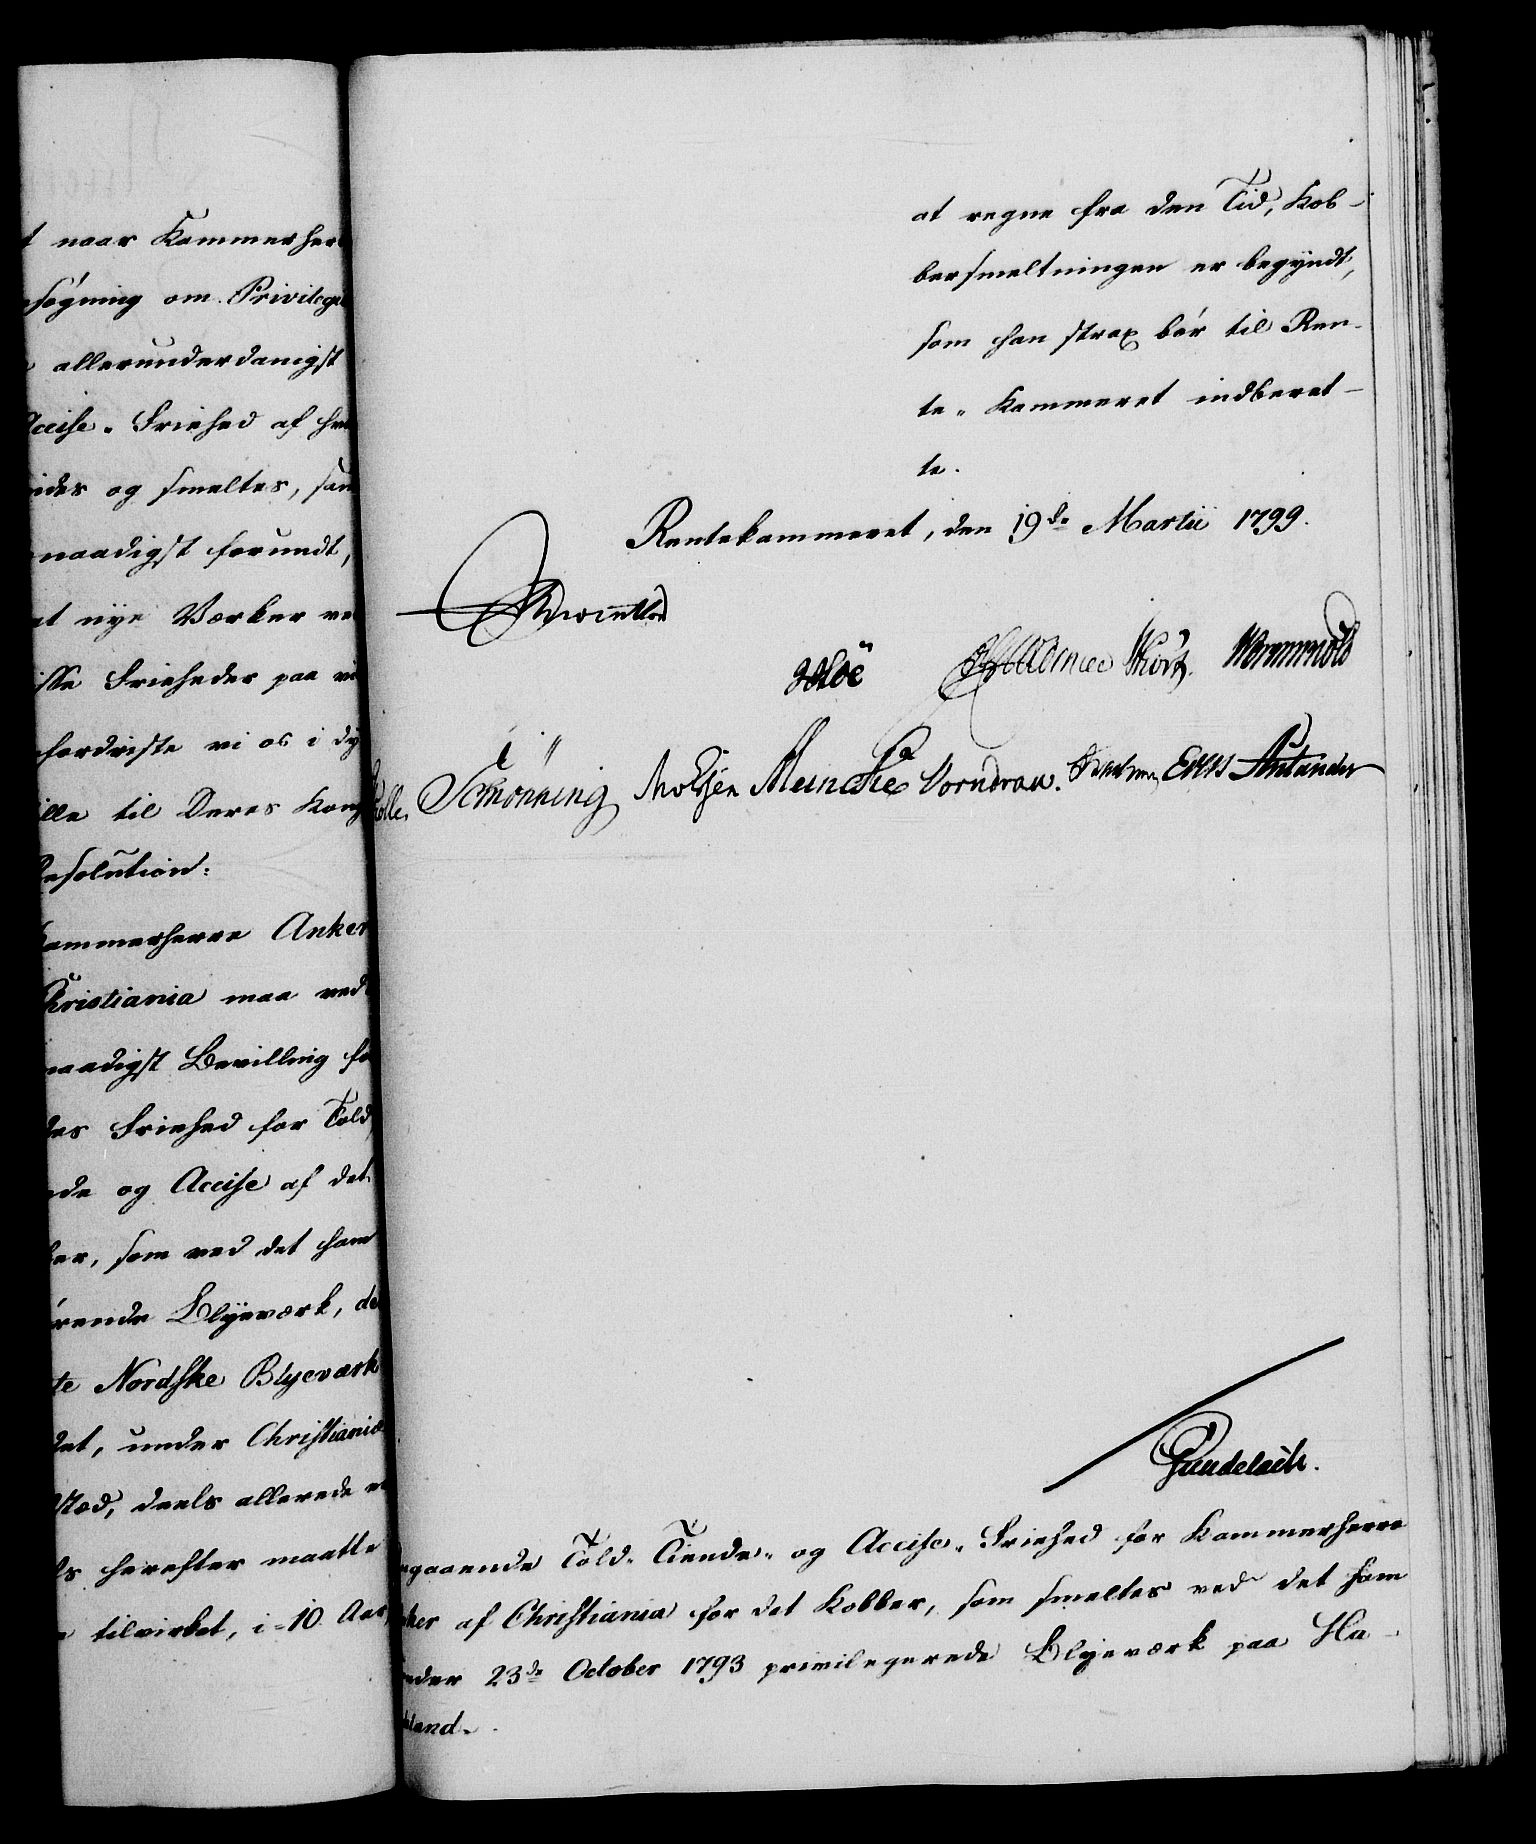 naar Kammerher
søgning om Privileg
allerunderdanigst
Accise-Friehed af
ides og smeltes, sam
naadigst forundt,
at nye Værker ve
isse Frieheder paa vi
fordriste vi os i dy
ille til Deres Kong
Resolution:
Kammerherre Anker
Christiania maa ved
naadigst Bevilling fo
des Friehed for Told
nde og Accise af det
ber, som ved det ham
rende Blyeværk, de
te Nordske Blyeværk
det, under Christiania
Stæd, deels allerede e
ls herefter maatte
tilvirket, i 10 Aar,
at regne fra den Tid, Kob-
bersmeltningen er begyndt,
som han strax bør til Ren-
te-Kammeret indberet-
te.
Rentekammeret, den 19de Martii 1799.
Wormskiold
Schønning Moltzen Meincke Vorndran. Evers Autander
Gundelach.
gaaende Told- Tiende- og Accise-Friehed for Kammerherre
ker af Christiania for det Kobber, som smeltes ved det ham
under 23de October 1793 privilegerede Blyeværk paa Ha-
deland.